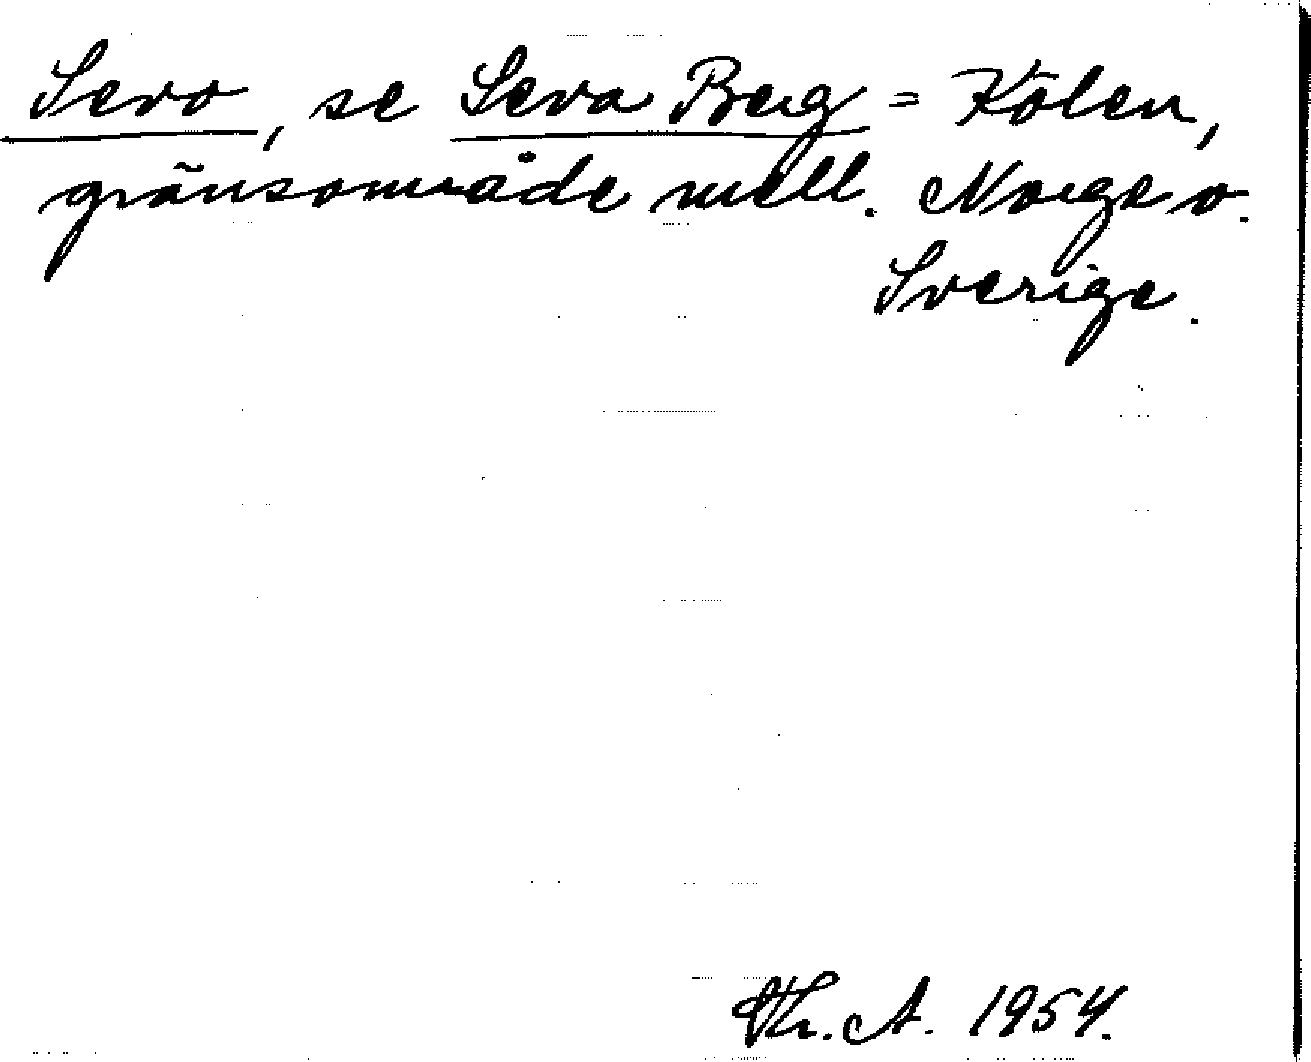 Sevo, se Seva Berg = Kölen,
gränsområde mell. Norge o.
Sverige.
Th. A. 1954.